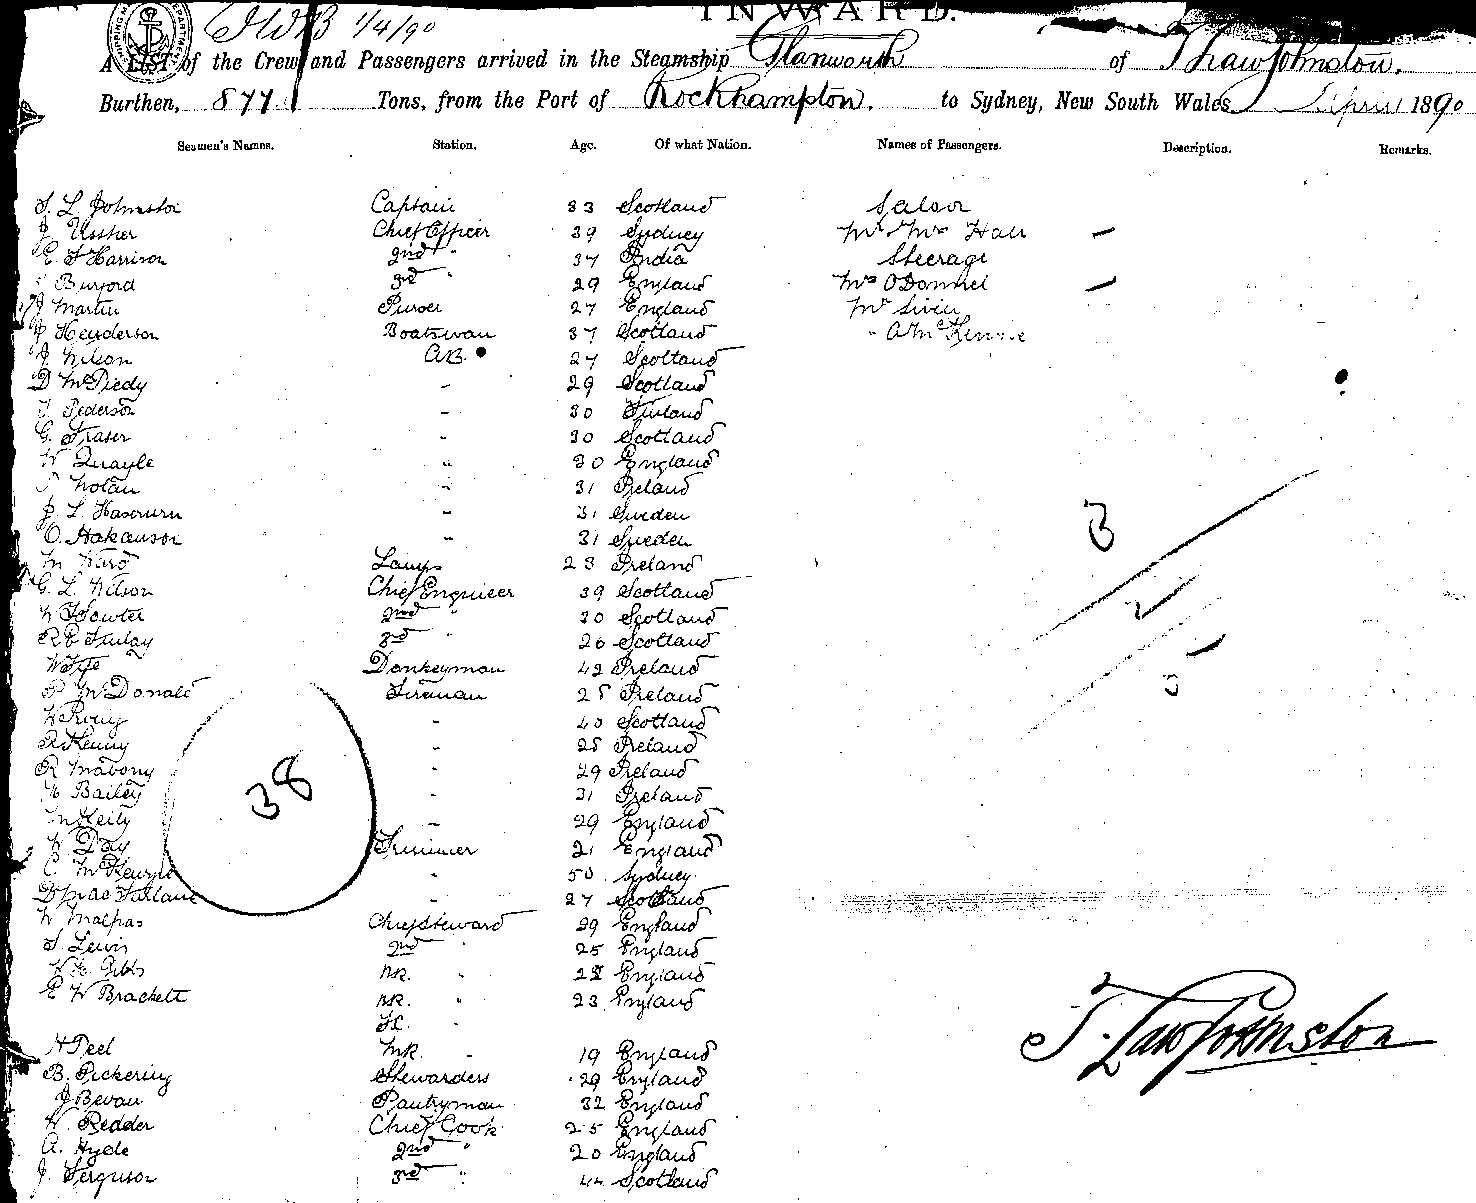 INWARD.
JWB 1/4/90
A LIST of the Crew and Passengers arrived in the Steamship Glanworth of T Law Johnston.
Burthen, 877 Tons, from the Port of Rockhampton. to Sydney, New South Wales April 1890
Seamen's Names. Station. Age. Of what Nation. Names of Passengers. Description. Remarks.
T. L Johnston Captain 33 Scotland Saloon
J Ussher Chief Officer 39 Sydney Mr Mrs Hall
E F Harrison 2nd " 37 India Steerage
Burford 3rd " 29 England Mrs O'Donnel
J Martin Purser 27 England Mr
J Henderson Boatswan 37 Scotland "
J Nilson AB. 27 Scotland
D McPiedy - 29 Scotland
Pederson - 30 Finland
G. Fraser - 30 Scotland
W Quayle " 30 England
Nolan " 31 Ireland
J. L. " 31 Sweden
O. Hakanson " 31 Sweden
M Ward Lamps 23 Ireland
G. L. Wilson Chief Engineer 39 Scotland
W Fowler 2nd " 30 Scotland
R C Finlay 3rd " 26 Scotland
W Fye Donkeyman 42 Ireland
P McDonald Fireman 25 Ireland
W - 40 Scotland
R Kenny - 25 Ireland
R Mahony - 29 Ireland
W Bailey - 31 Ireland
- 29 England
W Day Trimmer 21 England
C. McKenzie - 50 Sydney
D MacFarlane - 27 Scotland
W Malpas Chief Steward 29 England
S. Lewis 2nd " 25 England
W H. Gibbs MR. " 28 England
E W Brackett MR. " 23 England
FC. "
H Peel MR. " 19 England
B. Pickering Stewardess 29 England
J Bevan Pantryman 32 England
W. Redder Chief Cook 25 England
A. Hyde 2nd " 20 England
J. Ferguson 3rd " 44 Scotland
38
3
T. Law Johnston